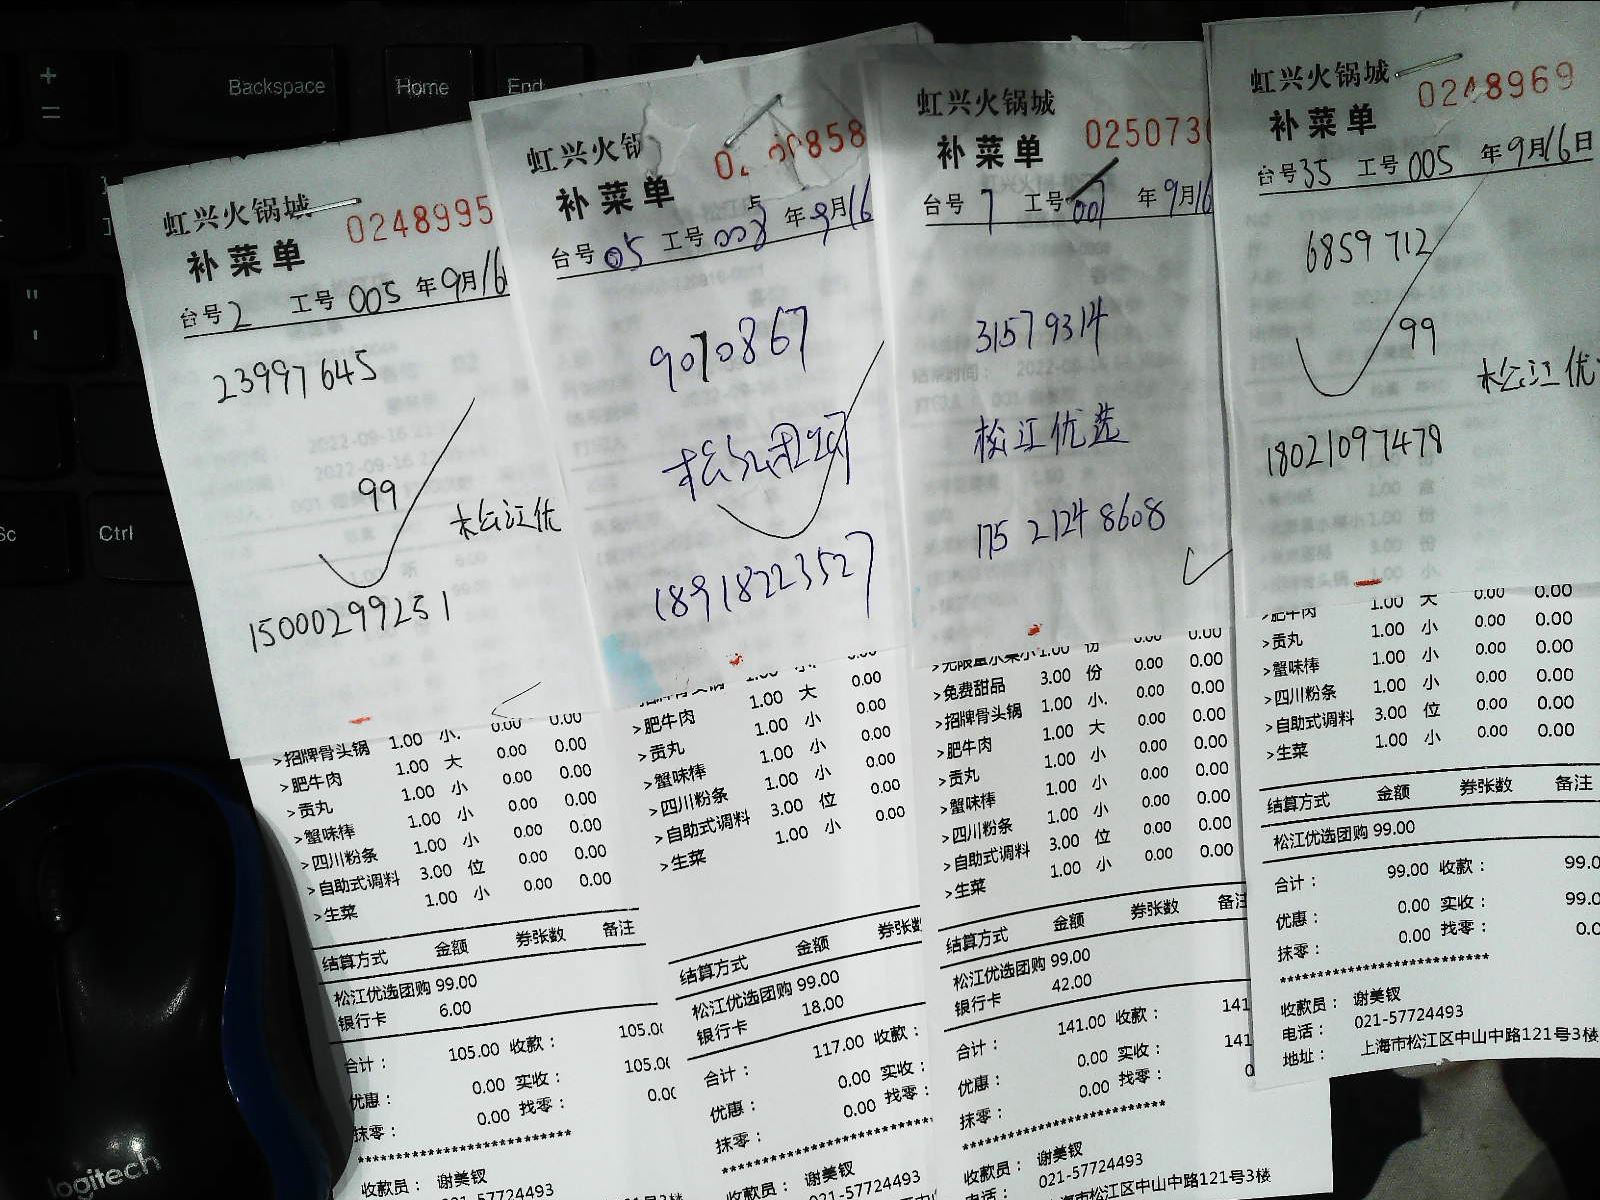 +
=
Backspace
Home
End
"
'
Ctrl
logitech
虹兴火锅城
0248995
补菜单
台号2 工号005 年9月16
23997645
99
松江优
15000299251
>招牌骨头锅 1.00 小. 0.00 0.00
>肥牛肉 1.00 大 0.00 0.00
>贡丸 1.00 小 0.00 0.00
>蟹味棒 1.00 小 0.00 0.00
>四川粉条 1.00 小 0.00 0.00
>自助式调料 3.00 位 0.00 0.00
>生菜 1.00 小 0.00 0.00
结算方式 金额 券张数 备注
松江优选团购 99.00
银行卡 6.00
合计： 105.00 收款： 105.0
优惠： 0.00 实收： 105.0
抹零： 0.00 找零： 0.0
******************************
收款员： 谢美钗
021-57724493
虹兴火锅
858
补菜单
台号05 工号008 年9月16
9070867
松江团购
18918223527
>肥牛肉 1.00 大 0.00
>贡丸 1.00 小 0.00
>蟹味棒 1.00 小 0.00
>四川粉条 1.00 小 0.00
>自助式调料 3.00 位 0.00
>生菜 1.00 小 0.00
结算方式 金额 券张数
松江优选团购 99.00
银行卡 18.00
合计： 117.00 收款：
优惠： 0.00 实收：
抹零： 0.00 找零：
******************************
收款员： 谢美钗
021-57724493
虹兴火锅城
025073
补菜单
台号7 工号007 年9月16
31579314
松江优选
175 2124 8608
>免费甜品 3.00 份 0.00 0.00
>招牌骨头锅 1.00 小. 0.00 0.00
>肥牛肉 1.00 大 0.00 0.00
>贡丸 1.00 小 0.00 0.00
>蟹味棒 1.00 小 0.00 0.00
>四川粉条 1.00 小 0.00 0.00
>自助式调料 3.00 位 0.00 0.00
>生菜 1.00 小 0.00 0.00
结算方式 金额 券张数 备注
松江优选团购 99.00
银行卡 42.00
合计： 141.00 收款： 141
优惠： 0.00 实收： 141
抹零： 0.00 找零： 0
******************************
收款员： 谢美钗
电话： 021-57724493
上海市松江区中山中路121号3楼
虹兴火锅城
0248969
补菜单
台号35 工号005 年9月16日
6859712
99
松江优
18021097478
>肥牛肉 1.00 大 0.00 0.00
>贡丸 1.00 小 0.00 0.00
>蟹味棒 1.00 小 0.00 0.00
>四川粉条 1.00 小 0.00 0.00
>自助式调料 3.00 位 0.00 0.00
>生菜 1.00 小 0.00 0.00
结算方式 金额 券张数 备注
松江优选团购 99.00
合计： 99.00 收款： 99.0
优惠： 0.00 实收： 99.0
抹零： 0.00 找零： 0.0
******************************
收款员： 谢美钗
电话： 021-57724493
地址： 上海市松江区中山中路121号3楼